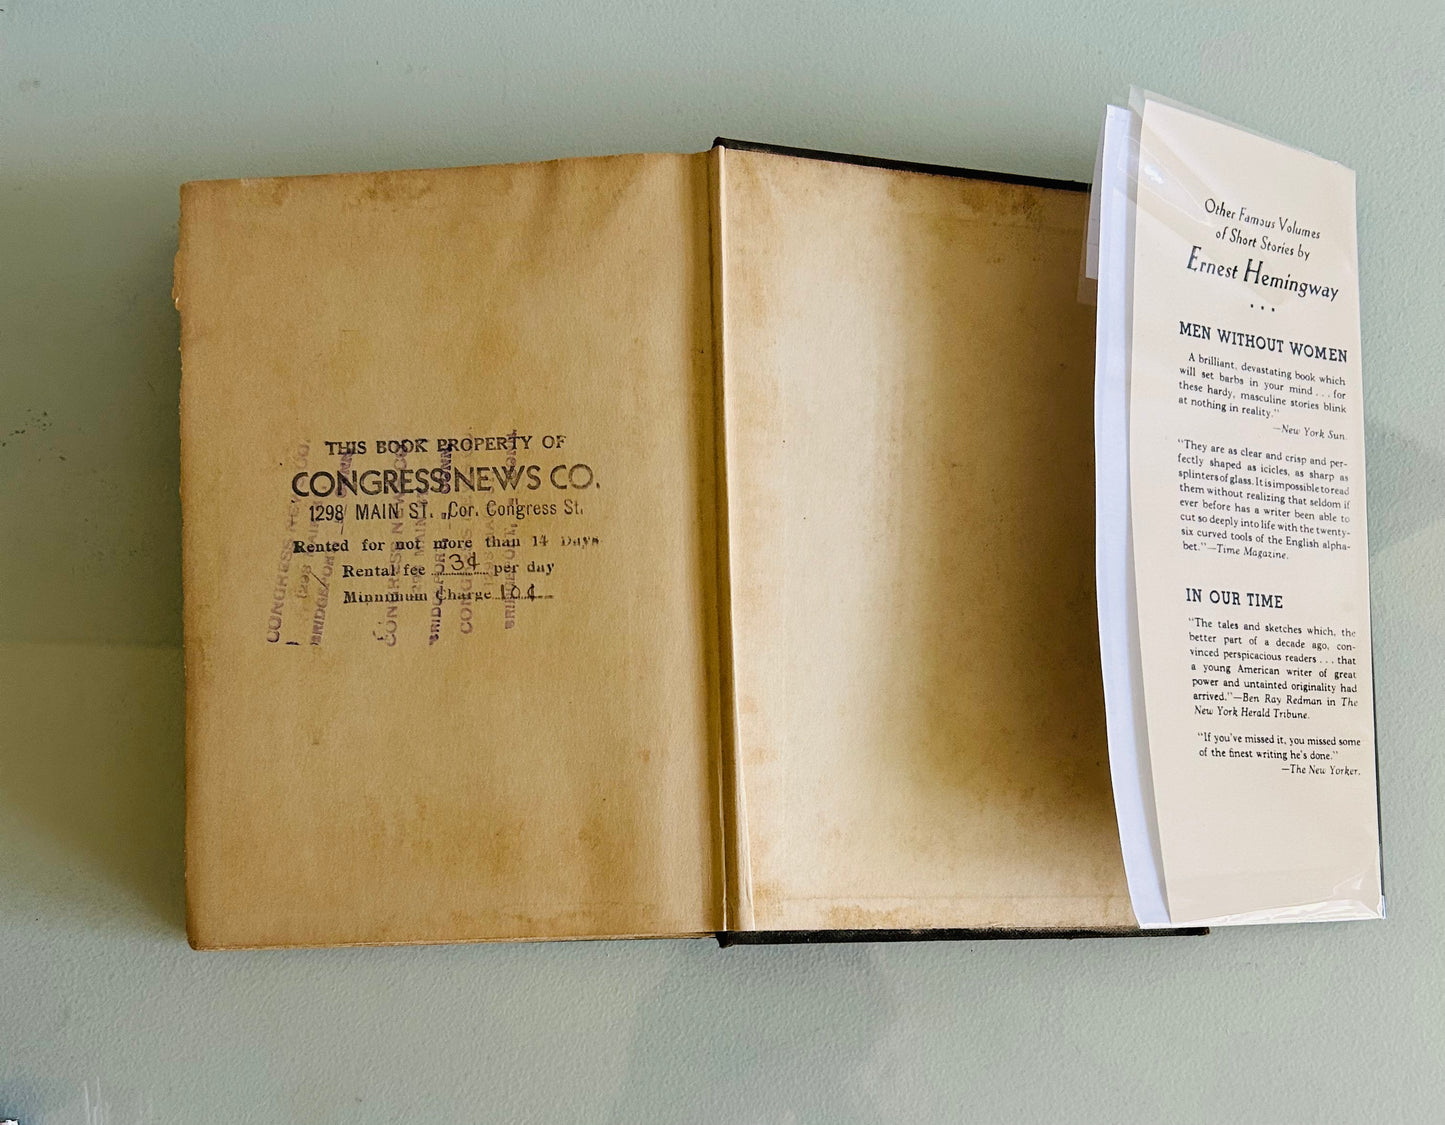 THIS BOOK PROPERTY OF
CONGRESS NEWS CO.
1298 MAIN ST. Cor. Congress St.
Rented for not more than 14 Days
Rental fee 3¢ per day
Minnimum Charge 10¢
CONGRESS NEWS CO.
1298 MAIN
BRIDGEPORT
CONGRESS NEWS CO.
MAIN
BRIDGEPORT, CONN.
Other Famous Volumes
of Short Stories by
Ernest Hemingway
...
MEN WITHOUT WOMEN
A brilliant, devastating book which
will set barbs in your mind . . . for
these hardy, masculine stories blink
at nothing in reality."
—New York Sun.
"They are as clear and crisp and per-
fectly shaped as icicles, as sharp as
splinters of glass. It is impossible to read
them without realizing that seldom if
ever before has a writer been able to
cut so deeply into life with the twenty-
six curved tools of the English alpha-
bet."—Time Magazine.
IN OUR TIME
"The tales and sketches which, the
better part of a decade ago, con-
vinced perspicacious readers . . . that
a young American writer of great
power and untainted originality had
arrived."—Ben Ray Redman in The
New York Herald Tribune.
"If you've missed it, you missed some
of the finest writing he's done."
—The New Yorker.